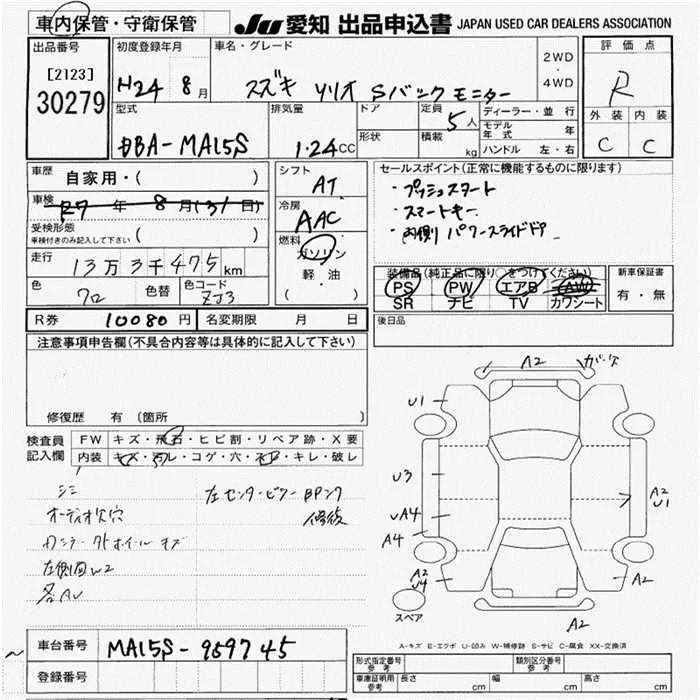 車内保管・守衛保管
JU 愛知 出品申込書 JAPAN USED CAR DEALERS ASSOCIATION
出品番号
[2123]
30279
初度登録年月
H24 8月
車名・グレード
スズキ ソリオ Sバックモニター
2WD
・
4WD
評価点
R
外装 内装
C C
型式
DBA-MA15S
排気量
1.24CC
ドア
形状
定員
5人
積載
kg
ディーラー・並行
モデル年式 年
ハンドル 左・右
車歴
自家用・( )
車検
R7年8月(31日)
受検形態
車検付きのみ記入して下さい ( )
走行
13万3千475km
色
クロ
色替
色コード
ZJ3
シフト
AT
冷房
AAC
燃料
ガソリン
軽・油
( )
セールスポイント(正常に機能するものに限ります)
・プッシュスタート
・スマートキー
・両側パワースライドドア
装備品(純正品に限り○をつけてください)
PS PW エアB AW
SR ナビ TV カワシート
新車保証書
有・無
R券 10080円
名変期限 月 日
後日品
注意事項申告欄(不具合内容等は具体的に記入して下さい)
修復歴 有 (箇所 )
検査員
記入欄
FW キズ・飛石・ヒビ割・リペア跡・X要
内装 キズ・汚レ・コゲ・穴・スレ・キレ・破レ
シミ
オーディオ欠穴
カンラー外ホイールキズ
左側面W2
各AU
左センターピラーBPンク
修後
A2 ガ欠
U1
U3
UA4
A4
A2
U4
A2
U1
A2
A2
スペア
A-キズ E-エクボ U-凹み W-補修跡 S-サビ C-腐食 XX-交換済
車台番号 MA15S-959745
登録番号
形式指定番号
参考
類別区分番号
参考
車庫証明用
参考
長さ cm 幅 cm 高さ cm